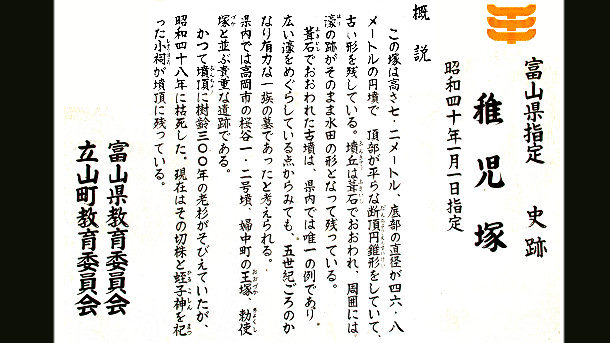 富山県指定　史跡
稚児塚
昭和四十年一月一日指定
概説
この塚は高さ七・二メートル、底部の直径が四六・八
メートルの円墳で　頂部が平らな断頂円錐形をしていて、
古い形を残している。墳丘は葺石でおおわれ、周囲には、
濠の跡がそのまま水田の形となって残っている。
葺石でおおわれた古墳は、県内では唯一の例であり
広い濠をめぐらしている点からみても、五世紀ごろのか
なり有力な一族の墓であったと考えられる。
県内では高岡市の桜谷一・二号墳、婦中町の王塚、勅使
塚と並ぶ貴重な遺跡である。
かつて墳頂に樹齢三〇〇年の老杉がそびえていたが、
昭和四十八年に枯死した。現在はその切株と蛭子神を祀
った小祠が墳頂に残っている。
富山県教育委員会
立山町教育委員会